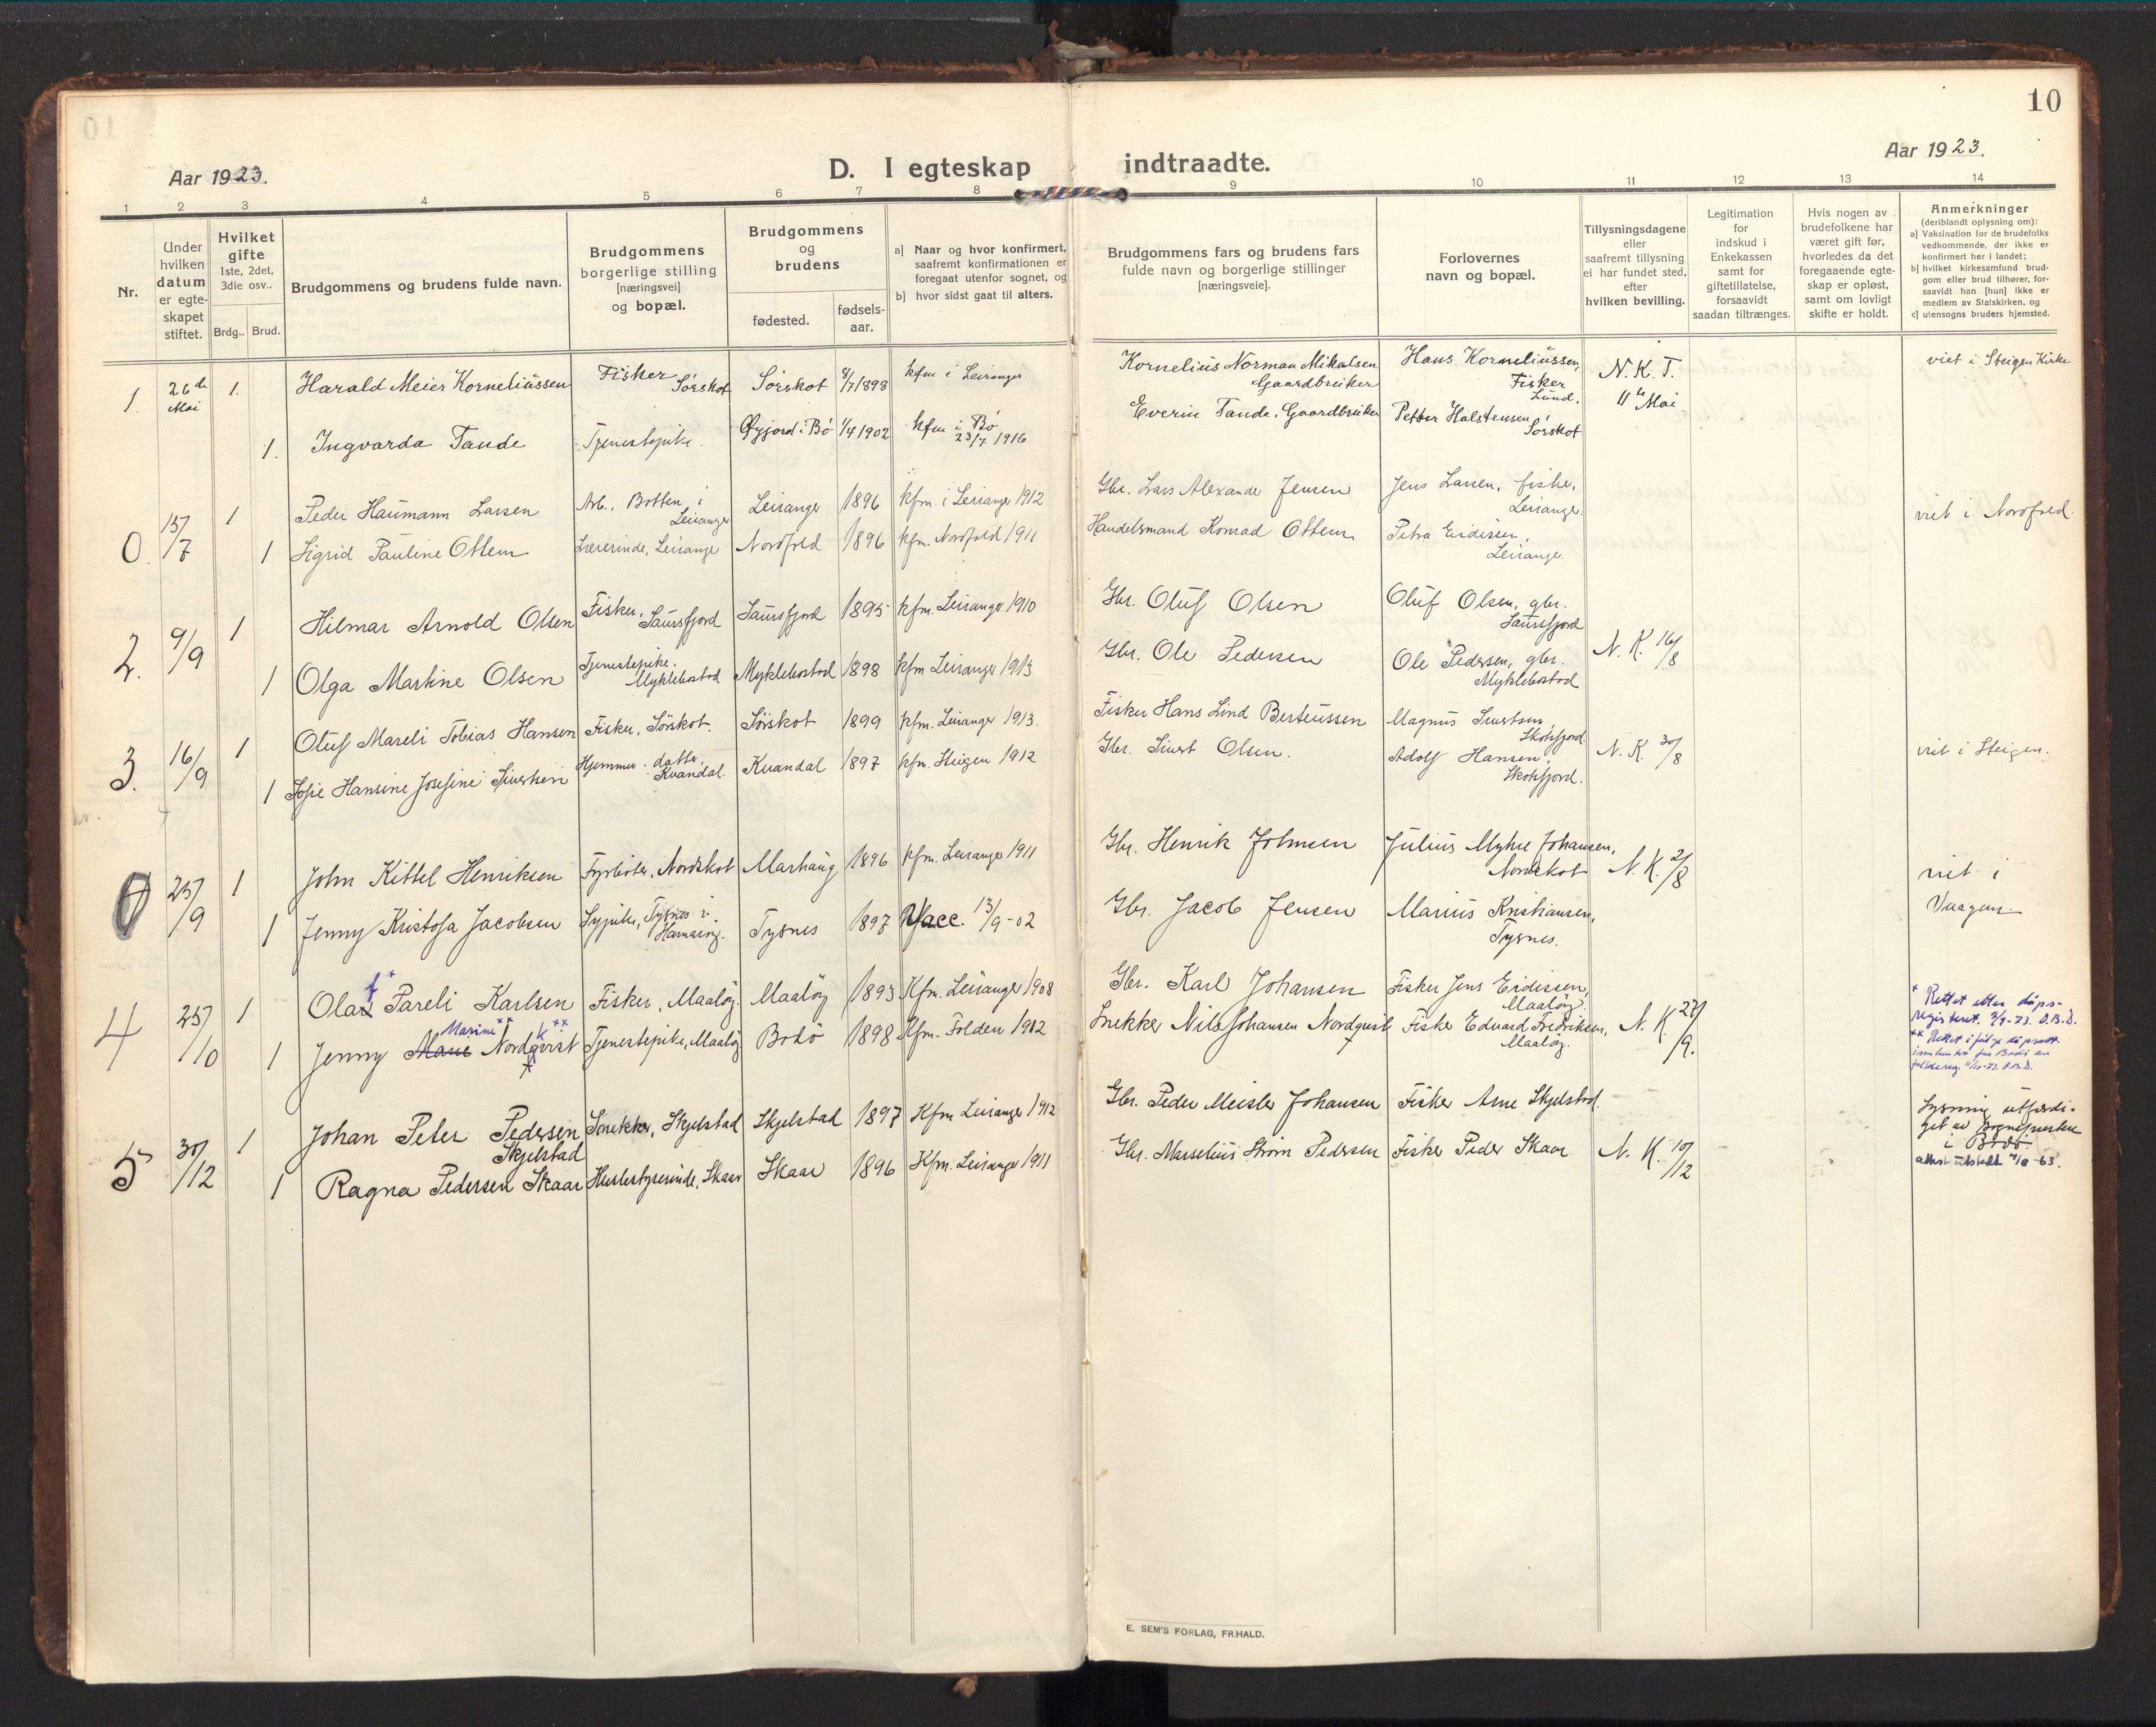 10
Aar 1923.
D. I egteskap indtraadte.
Aar 1923.
1 2 3 4 5 6 7 8 9 10 11 12 13 14
Nr.
Under
hvilken
datum
er egte-
skapet
stiftet.
Hvilket
gifte
1ste, 2det,
3die osv..
Brdg.. Brud.
Brudgommens og brudens fulde navn.
Brudgommens
borgerlige stilling
[næringsvei]
og bopæl.
Brudgommens
og
brudens
fødested.
fødsels-
aar.
a] Naar og hvor konfirmert,
saafremt konfirmationen er
foregaat utenfor sognet, og
b] hvor sidst gaat til alters.
Brudgommens fars og brudens fars
fulde navn og borgerlige stillinger
[næringsveie].
Forlovernes
navn og bopæl.
Tillysningsdagene
eller
saafremt tillysning
ei har fundet sted,
efter
hvilken bevilling.
Legitimation
for
indskud i
Enkekassen
samt for
giftetillatelse,
forsaavidt
saadan tiltrænges.
Hvis nogen av
brudefolkene har
været gift før,
hvorledes da det
foregaaende egte-
skap er opløst,
samt om lovligt
skifte er holdt.
Anmerkninger
(deriblandt oplysning om):
a] Vaksination for de brudefolks
vedkommende, der ikke er
konfirmert her i landet;
b] hvilket kirkesamfund brud-
gom eller brud tilhører, for-
saavidt han [hun] ikke er
medlem av Statskirken, og
c] utensogns bruders hjemsted.
1. 26de Mai 1. Harald Meier Korneliussen Fisker Sørskot Sørskot 8/7 1898 kfm i Leiranger Kornelius Norman Mikalsen Gaardbruker Hans Korneliussen, Fisker Lund. N. K. T. 11te Mai viet i Steigen Kirke
1. Ingvarda Tande Tjenestepike. Øyjord i Bø 1/4 1902 kfm i Bø 23/7 1916 Everin Tande, Gaardbruker Petter Halstensen Sørskot
0. 15/7 1 Peder Haumann Larsen Arb., Botten i Leiranger Leiranger 1896 kfm. i Leiranger 1912 Gbr. Lars Alexander Jensen Jens Larsen, fisker, Leiranger. viet i Nordfold.
1 Sigrid Pauline Ottem Lærerinde, Leiranger Nordfold 1896 kfm. Nordfold 1911 Handelsmand Konrad Ottem Petra Eidissen, Leiranger.
2. 9/9 1 Hilmar Arnold Olsen Fisker, Saursfjord Saursfjord 1895 kfm. Leiranger 1910 Gbr. Oluf Olsen Oluf Olsen, gbr. Saursfjord N. K. 16/8
1 Olga Martine Olsen Tjenestepike. Myklebostad Myklebostad 1898 kfm Leiranger 1913 Gbr. Ole Pedersen Ole Pedersen, gbr. Myklebostad
3. 16/9 1 Oluf Mareli Tobias Hansen Fisker, Sørskot. Sørskot 1899 kfm. Leiranger 1913. Fisker Hans Lind Berteussen Magnus Siversen, Skotsfjord N. K. 30/8 viet i Steigen.
1 Sofie Hansine Josefine Sivertsen Hjemmev. datter, Kvandal. Kvandal 1897 kfm. Steigen 1912 Gbr. Sivert Olsen. Adolf Hansen, Skotsfjord.
0 25/9 1 John Kittel Henriksen Fyrbøter, Nordskot Marhaug 1896 kfm. Leiranger 1911 Gbr. Henrik Johnsen Julius Myhre Johansen, Nordskot N. K. 2/8 viet i Vaagan.
1 Jenny Kristofa Jacobsen Sypike, Tysnes i Hamarøy. Tysnes 1897 Vacc. 13/9-02 Gbr. Jacob Jensen Marius Kristiansen, Tysnes.
4 25/10 1 Olaf* Pareli Karlsen Fisker, Maaløy. Maaløy 1893 Kfm. Leiranger 1908 Gbr. Karl Johansen Fisker Jens Eidissen, Maaløy N. K. 27/9. * Rettet etter dåps- registeret. 3/9-73. O.B.D.
1 Jenny Marie Marine** Nordqvist k** Tjenestepike, Maaløy Bodø 1898 Kfm. Folden 1912 Snekker Nils Johansen Nordqvist Fisker Edvard Fredriksen, Maaløy. ** Rettet i følge dåpsatt.
5 30/12 1 Johan Peter Pedersen Skjelstad Snekker, Skjelstad Skjelstad 1897 Kfm Leiranger 1912 Gbr. Peder Meisler Johansen Fisker Arne Skjelstad. N. K. 10/12 Lysning utferdi- get av sogneprestene i Bodø. attest utstedt 7/8-63.
1 Ragna Pedersen Skaar Husbestyrerinde, Skaar Skaar 1896 Kfm. Leiranger 1911 Gbr. Marselius Strøm Pedersen Fisker Peder Skaar
E. SEM'S FORLAG, FR.HALD.